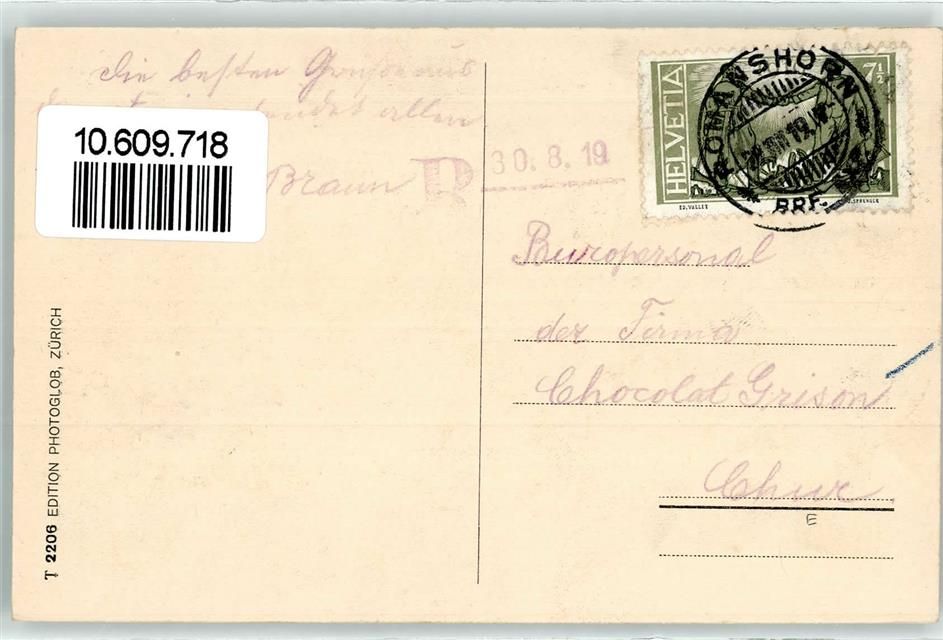 die besten Grüsse aus
allen
10.609.718
Braun
R 30. 8. 19
HELVETIA
7½
ROMANSHORN
BRF.
ED. VALLET
Buropersonal
der Firma
Chocolat Grison
Chur
E
T 2206 EDITION PHOTOGLOB, ZÜRICH